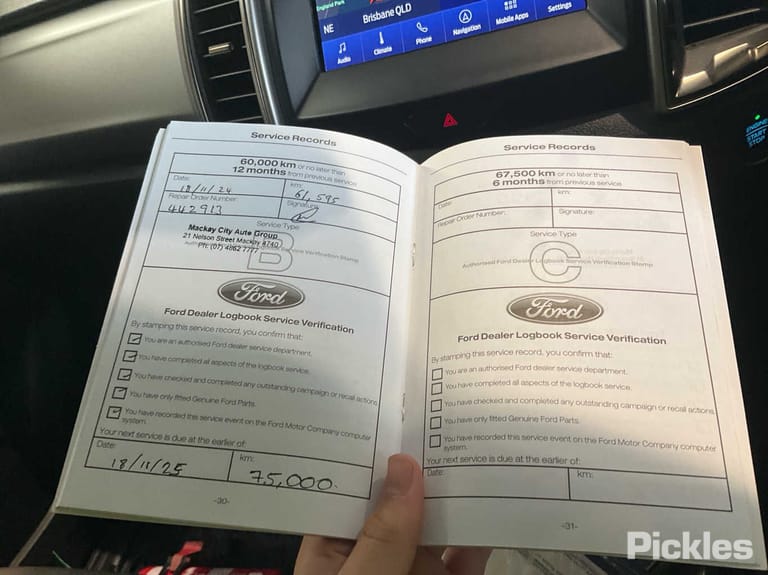 England Park
Brisbane QLD
NE
Audio
Climate
Phone
Navigation
Mobile Apps
Settings
ENGINE
START
STOP
Service Records
60,000 km or no later than
12 months from previous service
Date:
18/11/24
km:
61,595
Repair Order Number:
442913
Signature:
Service Type
B
Mackay City Auto Group
21 Nelson Street Mackay 4740
Ph: (07) 4862 7777
Service Verification Stamp
Ford
Ford Dealer Logbook Service Verification
By stamping this service record, you confirm that:
You are an authorised Ford dealer service department.
You have completed all aspects of the logbook service.
You have checked and completed any outstanding campaign or recall actions
You have only fitted Genuine Ford Parts.
You have recorded this service event on the Ford Motor Company computer
system.
Your next service is due at the earlier of:
Date:
18/11/25
km:
75,000.
-30-
Service Records
67,500 km or no later than
6 months from previous service
Date:
km:
Repair Order Number:
Signature:
Service Type
C
Authorised Ford Dealer Logbook Service Verification Stamp
Ford
Ford Dealer Logbook Service Verification
By stamping this service record, you confirm that:
You are an authorised Ford dealer service department.
You have completed all aspects of the logbook service.
You have checked and completed any outstanding campaign or recall actions
You have only fitted Genuine Ford Parts.
You have recorded this service event on the Ford Motor Company computer
system.
Your next service is due at the earlier of:
Date:
km:
-31-
Pickles